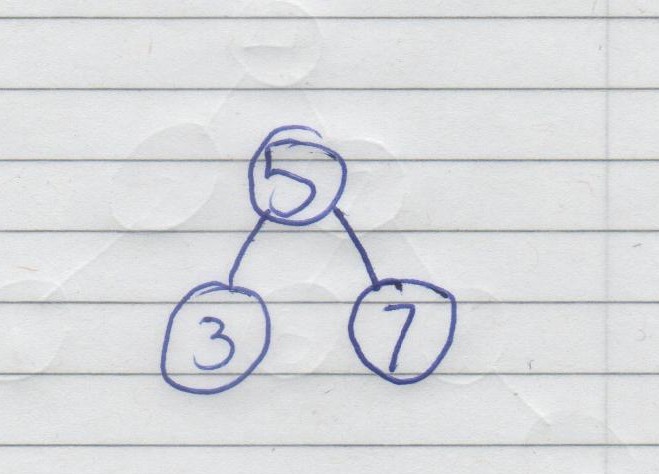 5
3 7